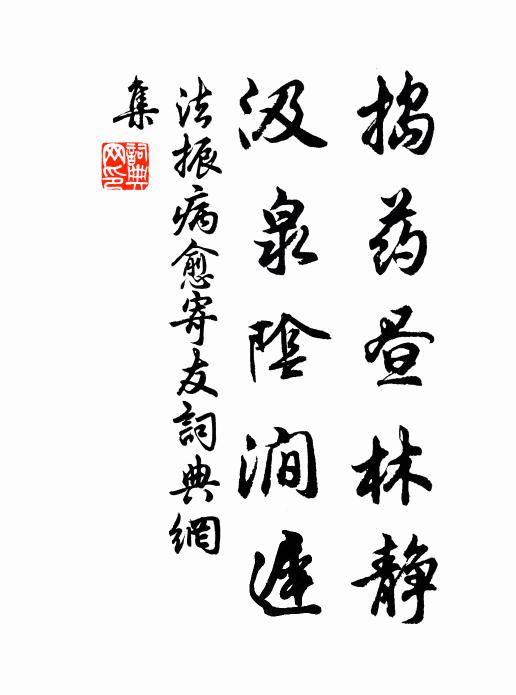 搗药昼林静
汲泉陰澗遲
法振病愈寄友詞典網
集
詞典网印